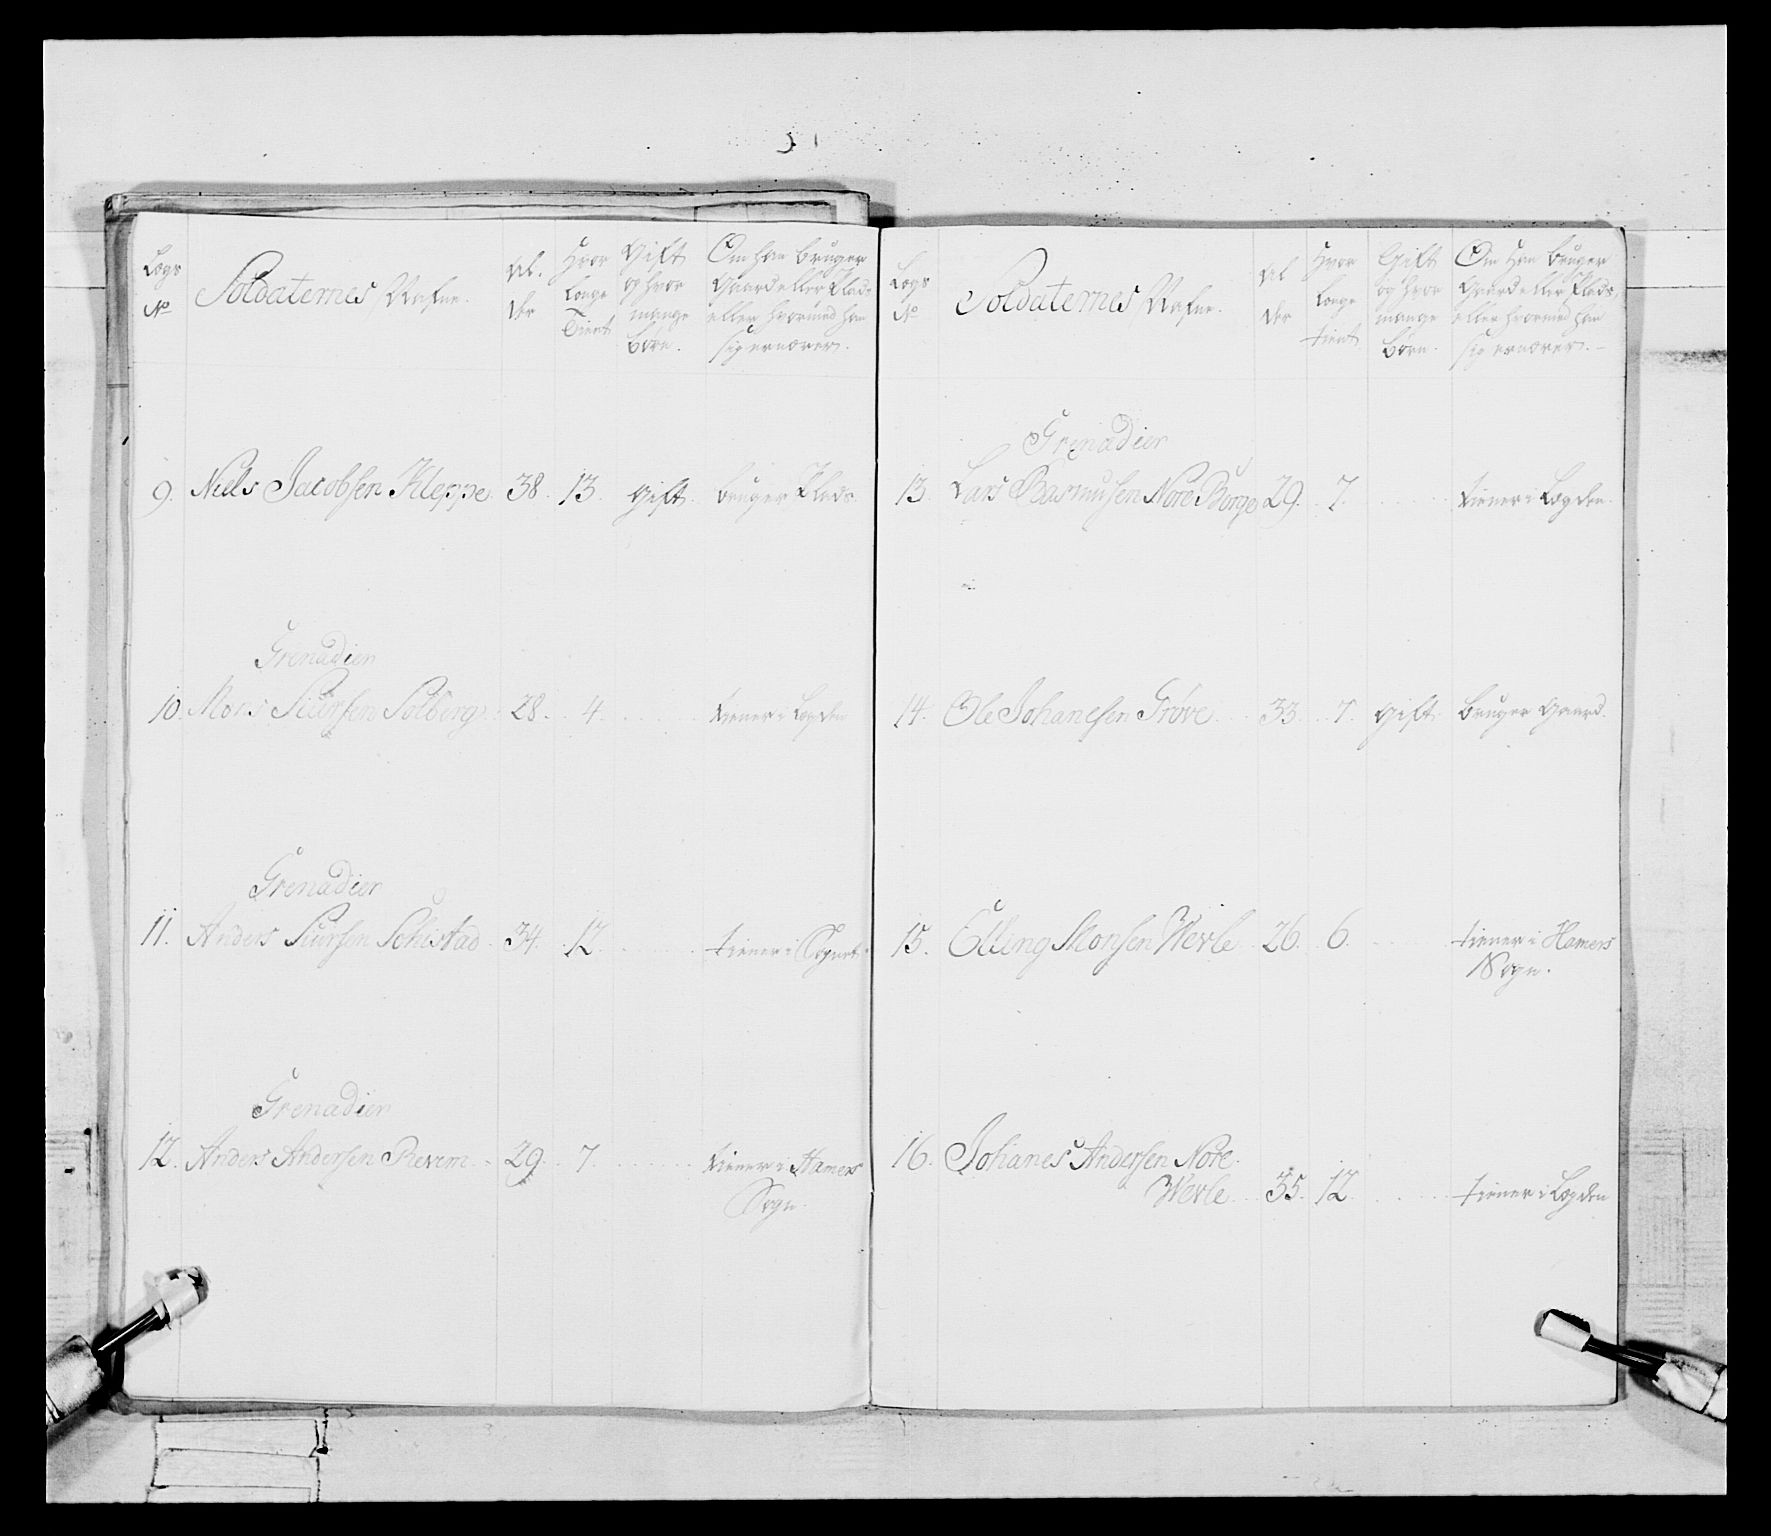 Lægs No | Soldaternes Nafne. | Al. der | Hvor længe Tient | Gift og hvor mange børn. | Om han bruger Gaard eller Plads eller hvormed han sig ernærer.
9. Niels Jacobsen Kleppe. 38. 13. Gift. bruger Plads.
Grenadier
10. Mons Siursen Solberg 28. 4. tiener i Lægden
Grenadier
11. Anders Siursen Schistad 34. 12. tiener i Sognet.
Grenadier
12. Anders Andersen Revem 29. 7. tiener i Hamers
Sogn.
Lægs No | Soldaternes Nafne. | Al der | Hvor længe tient | Gift og hvor mange børn. | Om han bruger Gaard eller Plads, eller hvormed han sig ernærer.
Grenadier
13. Lars Rasmusen Nore Borge 29. 7. tiener i Lægden.
14. Ole Johanesen Grøve 33. 7. Gift. bruger Gaard.
15. Elling Monsen Werle 26. 6. tiener i Hamers
Sogn.
16. Johanes Andersen Nore
Werle 35. 12. tiener i Lægden